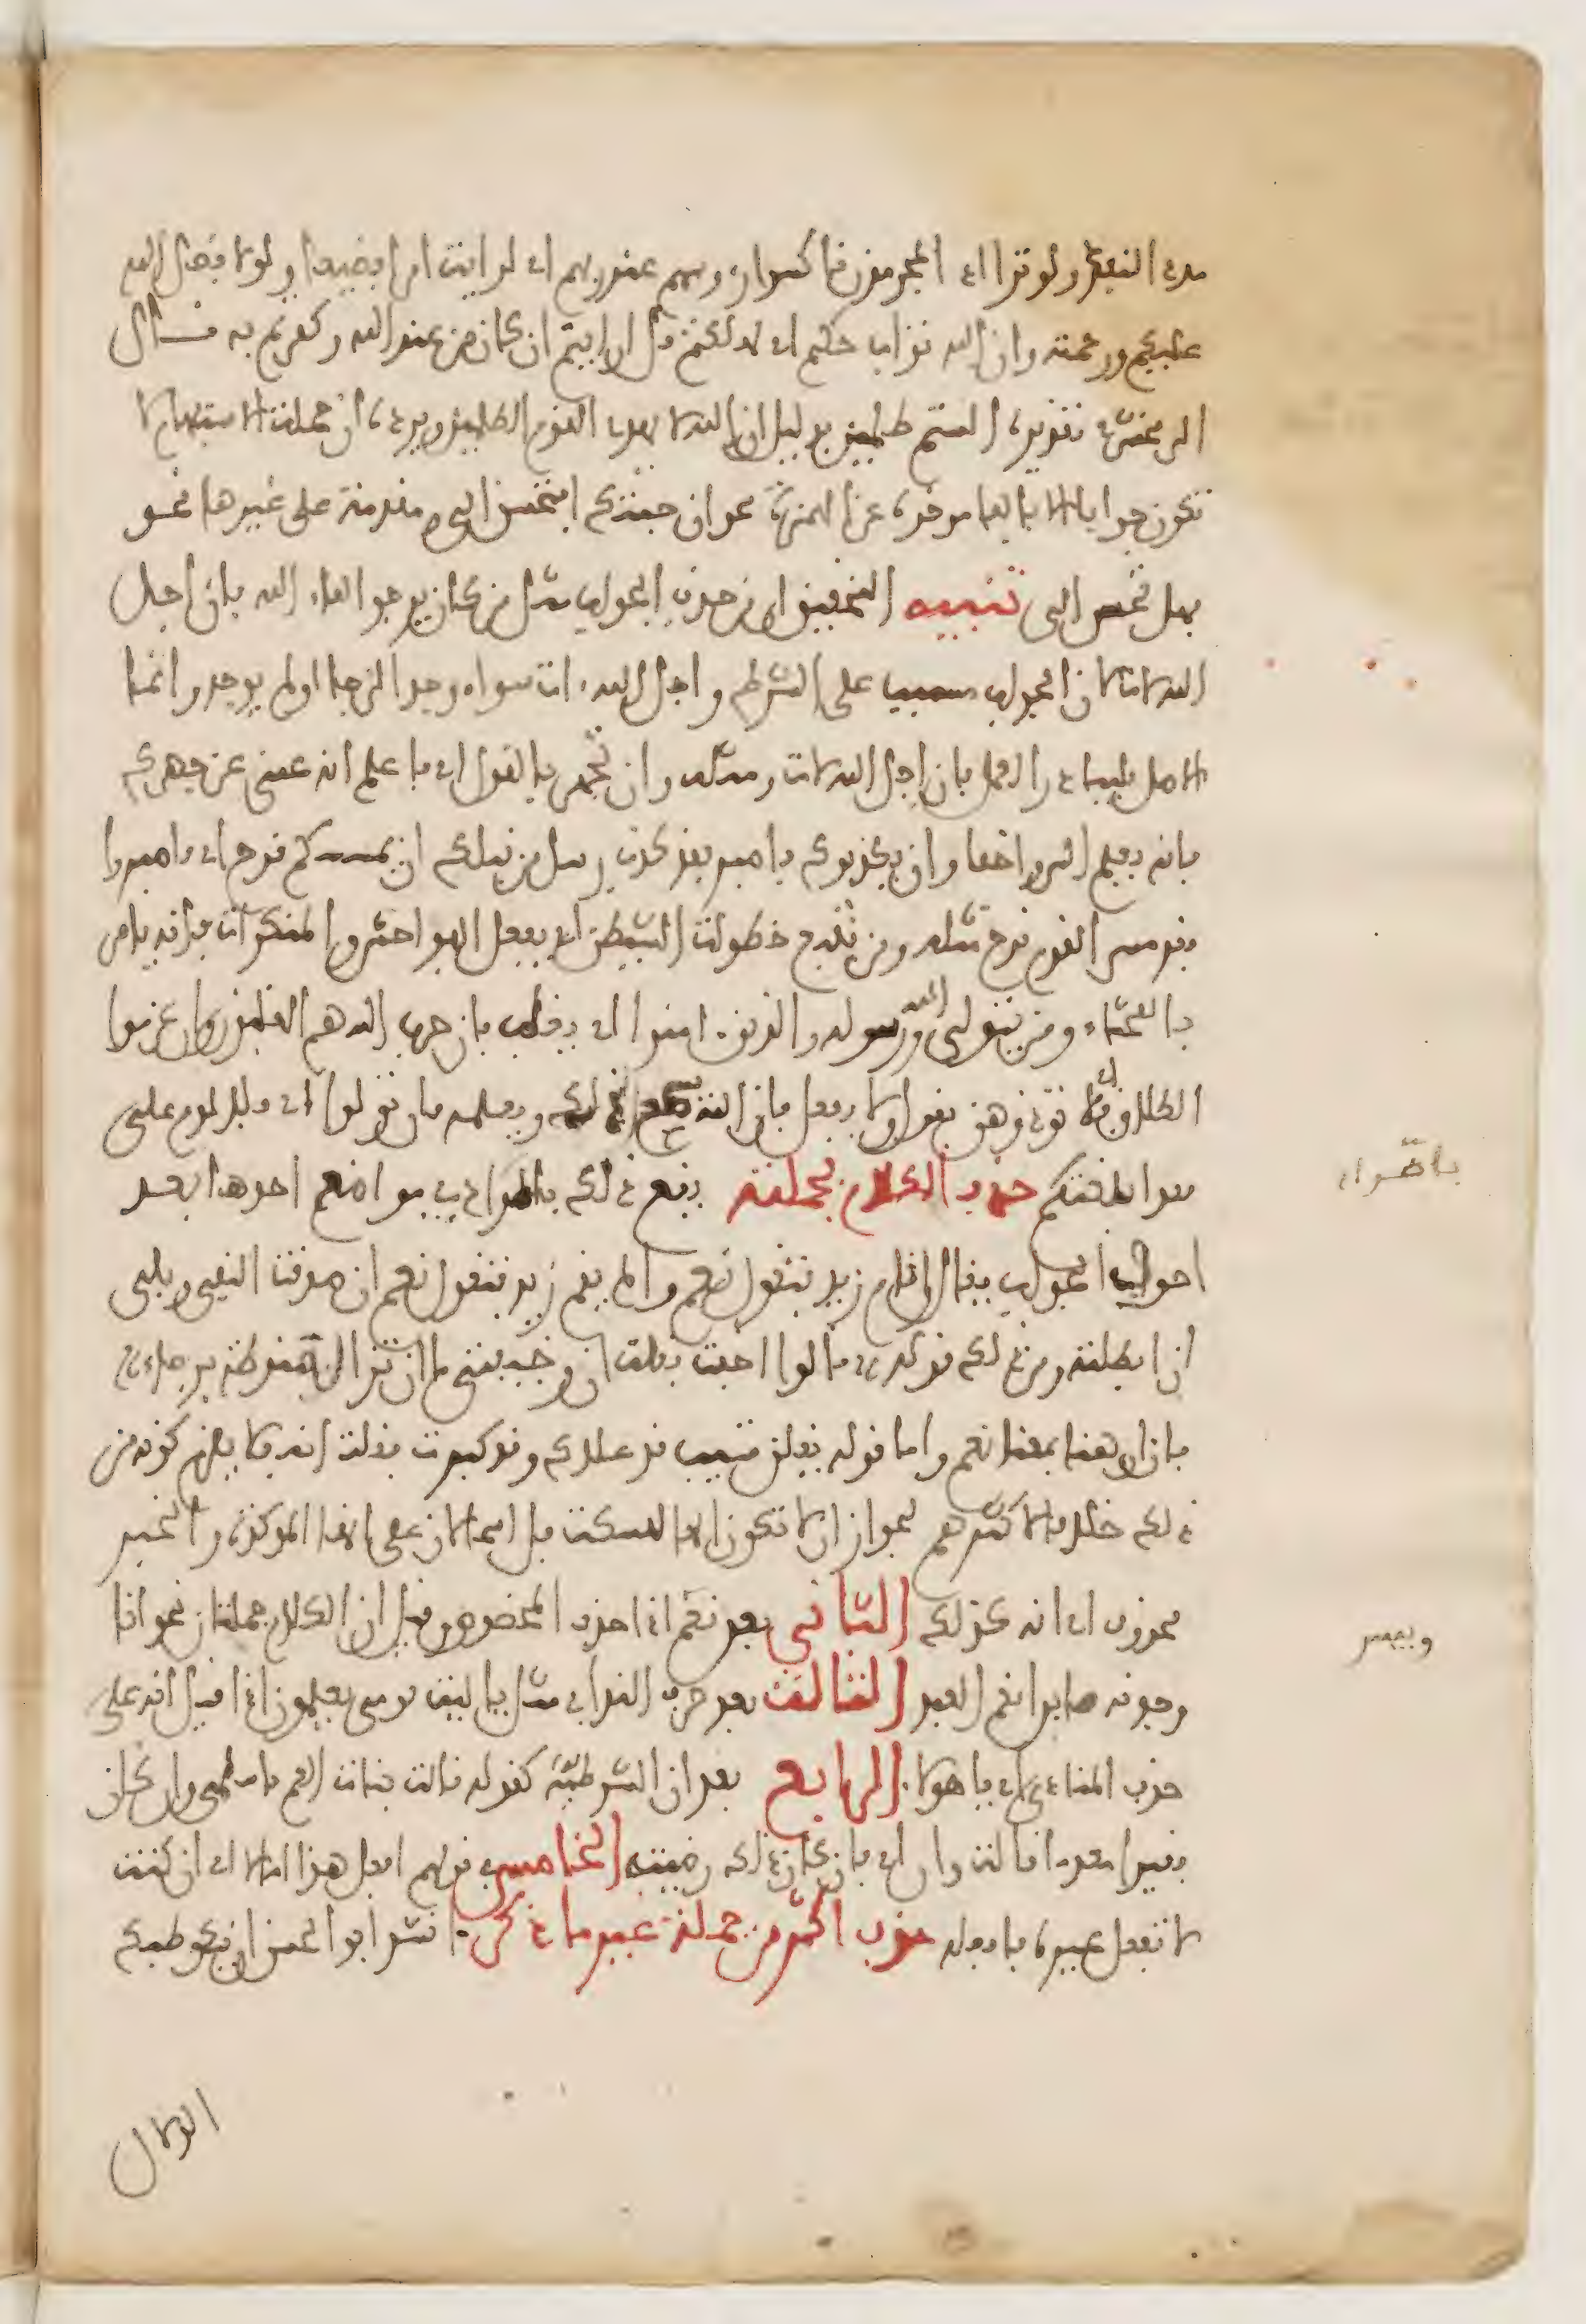 مدة النبي ولو ترا اذ المجرمون ناكسوا روسهم عند ربهم اي لرايت امرا فضيعا ولولا فضل الله
عليكم ورحمته وان الله تواب حكيم اي لهلكتم قل ارايتم ان كان من عند الله وكفرتم به قال
الزمخشري تقديره الستم ظلمين بدليل ان الله لا يهدي القوم الظلمين ويرده ان جملة الاستفهام لا
تكون جوابا الا بالفا موخرة عن الهمزة نحو ان جئتك افتحسن الي ومقدمة على غيرها نحو
فهل تحسن الى تنبيه التحقيق ان من حذف الجواب مثل من كان يرجوا لقاء الله فان اجل
الله لات لان الجواب مسبب على الشرط واجل الله ءات سواء وجد الرجا اولم يوجد وانما
الاصل فليبادر العمل فان اجل الله لات ومثله وان تجهر بالقول اي فاعلم انه غني عن جهرك
فانه يعلم السر واخفا وان يكذبوك فاصبر فقد كذبت رسل من قبلك ان يمسسكم قرح اي فاصبروا
فقد مس القوم قرح مثله ومن يتبع خطوات الشيطن اي يفعل الفواحش والمنكرات فانه يامر
بالفحشاء ومن يتولى الله ورسوله والذين ءامنوا اي يغلب فان حزب الله هم الغلبون وان عزموا
الطلاق اي فلا توذوهن بقول ولا بفعل فان الله يسمع ذلك ويعلمه فان تولوا اي فلا لوم علي
فقد ابلغتكم حذف الكلام بجملته يقع ذلك باطراد في مواضع احدها بعد
احرف الجواب يقال اقام زيد فتقول نعم والم يقم زيد فتقول نعم ان صدقت النفي وبلى
ان ابطلته ومن ذلك قوله قالوا اخفت فقلت ان وخيفتي ما ان تزال منوطة برجاءي
فان ان هنا بمعنا نعم واما قوله ويقلن شيب قد علاك وقد كبرت فقلت انه فلا يلزم كونه من
ذلك خلافا لاكثرهم لجواز ان لا تكون الها للسكت بل اسما لان على انها الموكدة والخبر
محذوف اي انه كذلك الثاني بعد نعم اذا حذف المخصوص وقيل ان الكلام جملتان نحو انا
وجدنه صابرا نعم العبد الثالث بعد حرف النداء في مثل يا ليت قومي يعلمون اذا قيل انه على
حذف المنادى اي يا هولا الرابع بعد ان الشرطية كقوله قالت بنات العم يا سلمى وان كان
فقيرا معدما قالت وان اي وان كان ذلك رضيته الخامس في قولهم افعل هذا امالا اي ان كنت
لا تفعل غيره فافعله حذف اكثر من جملة غير ما ذكر انشد ابو الحسن ان يكن طبك
باطراد
وبيس
الدلال